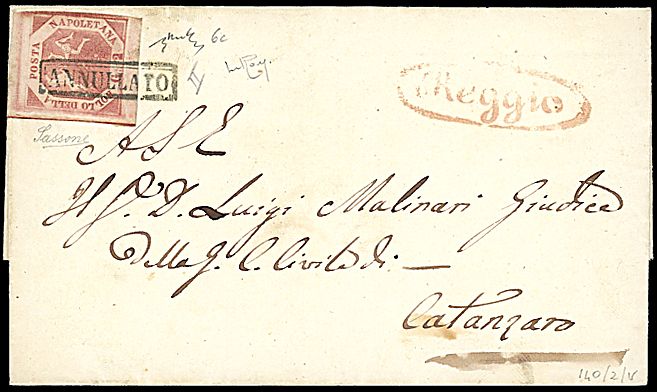 POSTA NAPOLETANA
BOLLO DELLA
ANNULLATO
6c
Reggio
Sassone
A S E
Il Sr. D. Luigi Malinari Giudice
della G. C. Civile di —
Catanzaro
140/2/v